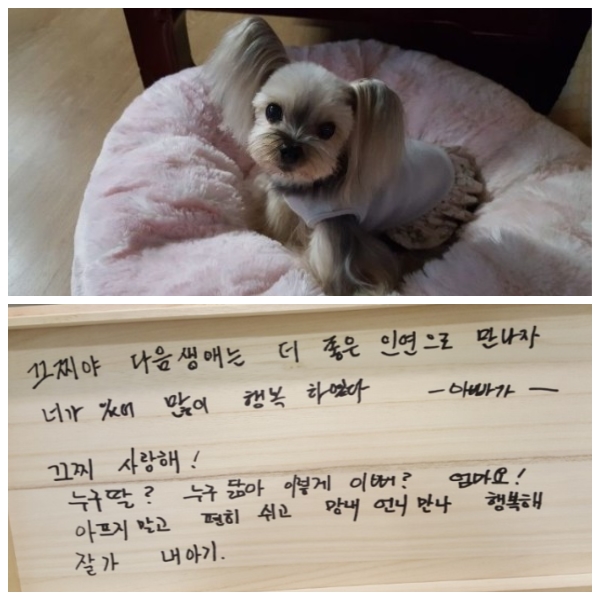 끄찌야 다음생애는 더 좋은 인연으로 만나자
너가 있어 많이 행복 하였다 -아빠가-
끄찌 사랑해!
누구딸? 누구 닮아 이렇게 이뻐? 엄마요!
아프지 말고 편히 쉬고 망내 언니 만나 행복해
잘가 내아기.